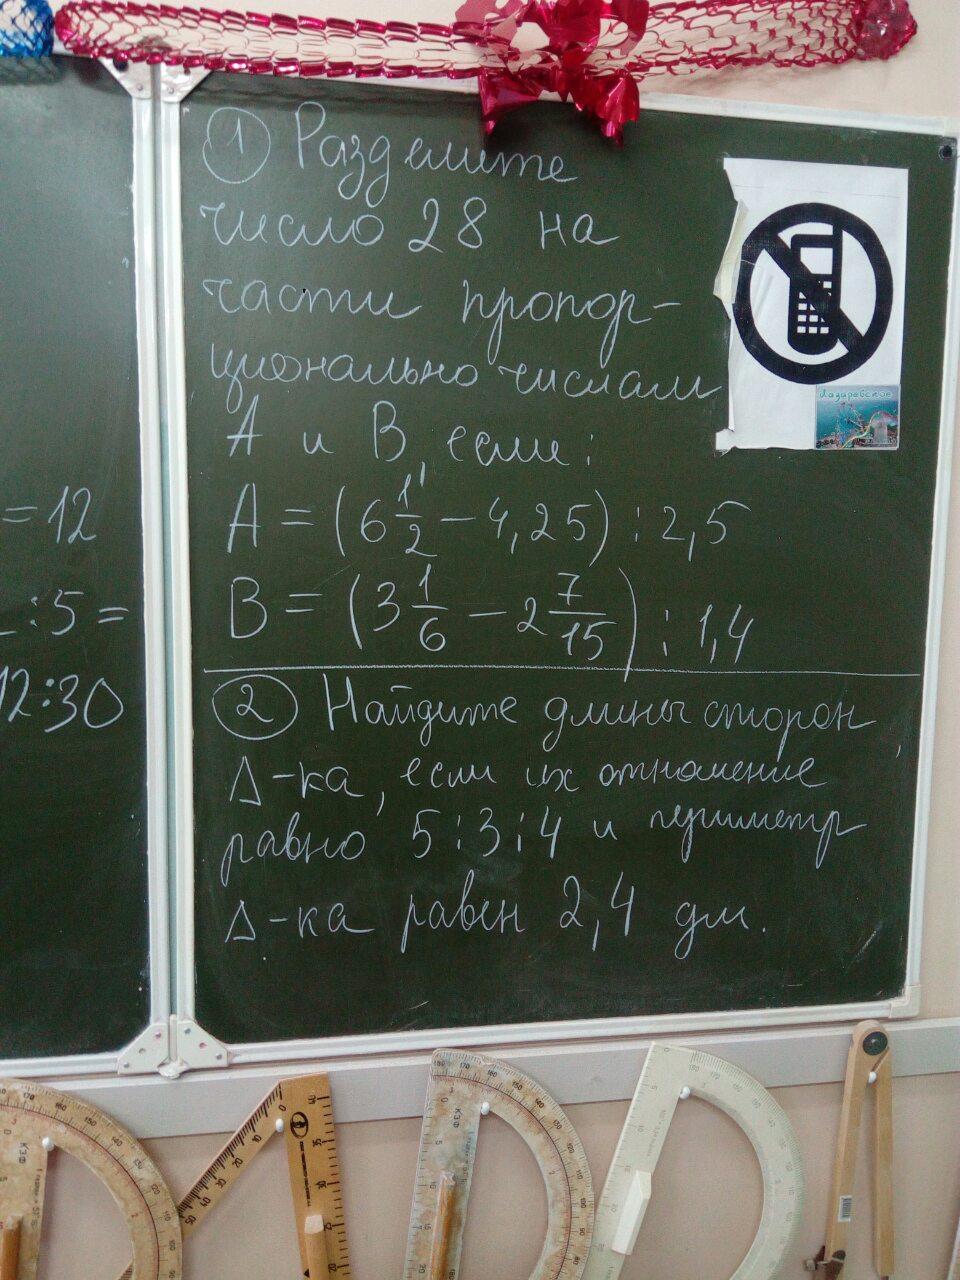 = 12
:5 =
12:30
① Разделите
число 28 на
части пропор-
ционально числам
A и B, если:
A = (6 1/2 - 4,25) : 2,5
B = (3 1/6 - 2 7/15) : 1,4
② Найдите длины сторон
Δ-ка, если их отношение
равно 5:3:4 и периметр
Δ-ка равен 2,4 дм.
Лазаревское